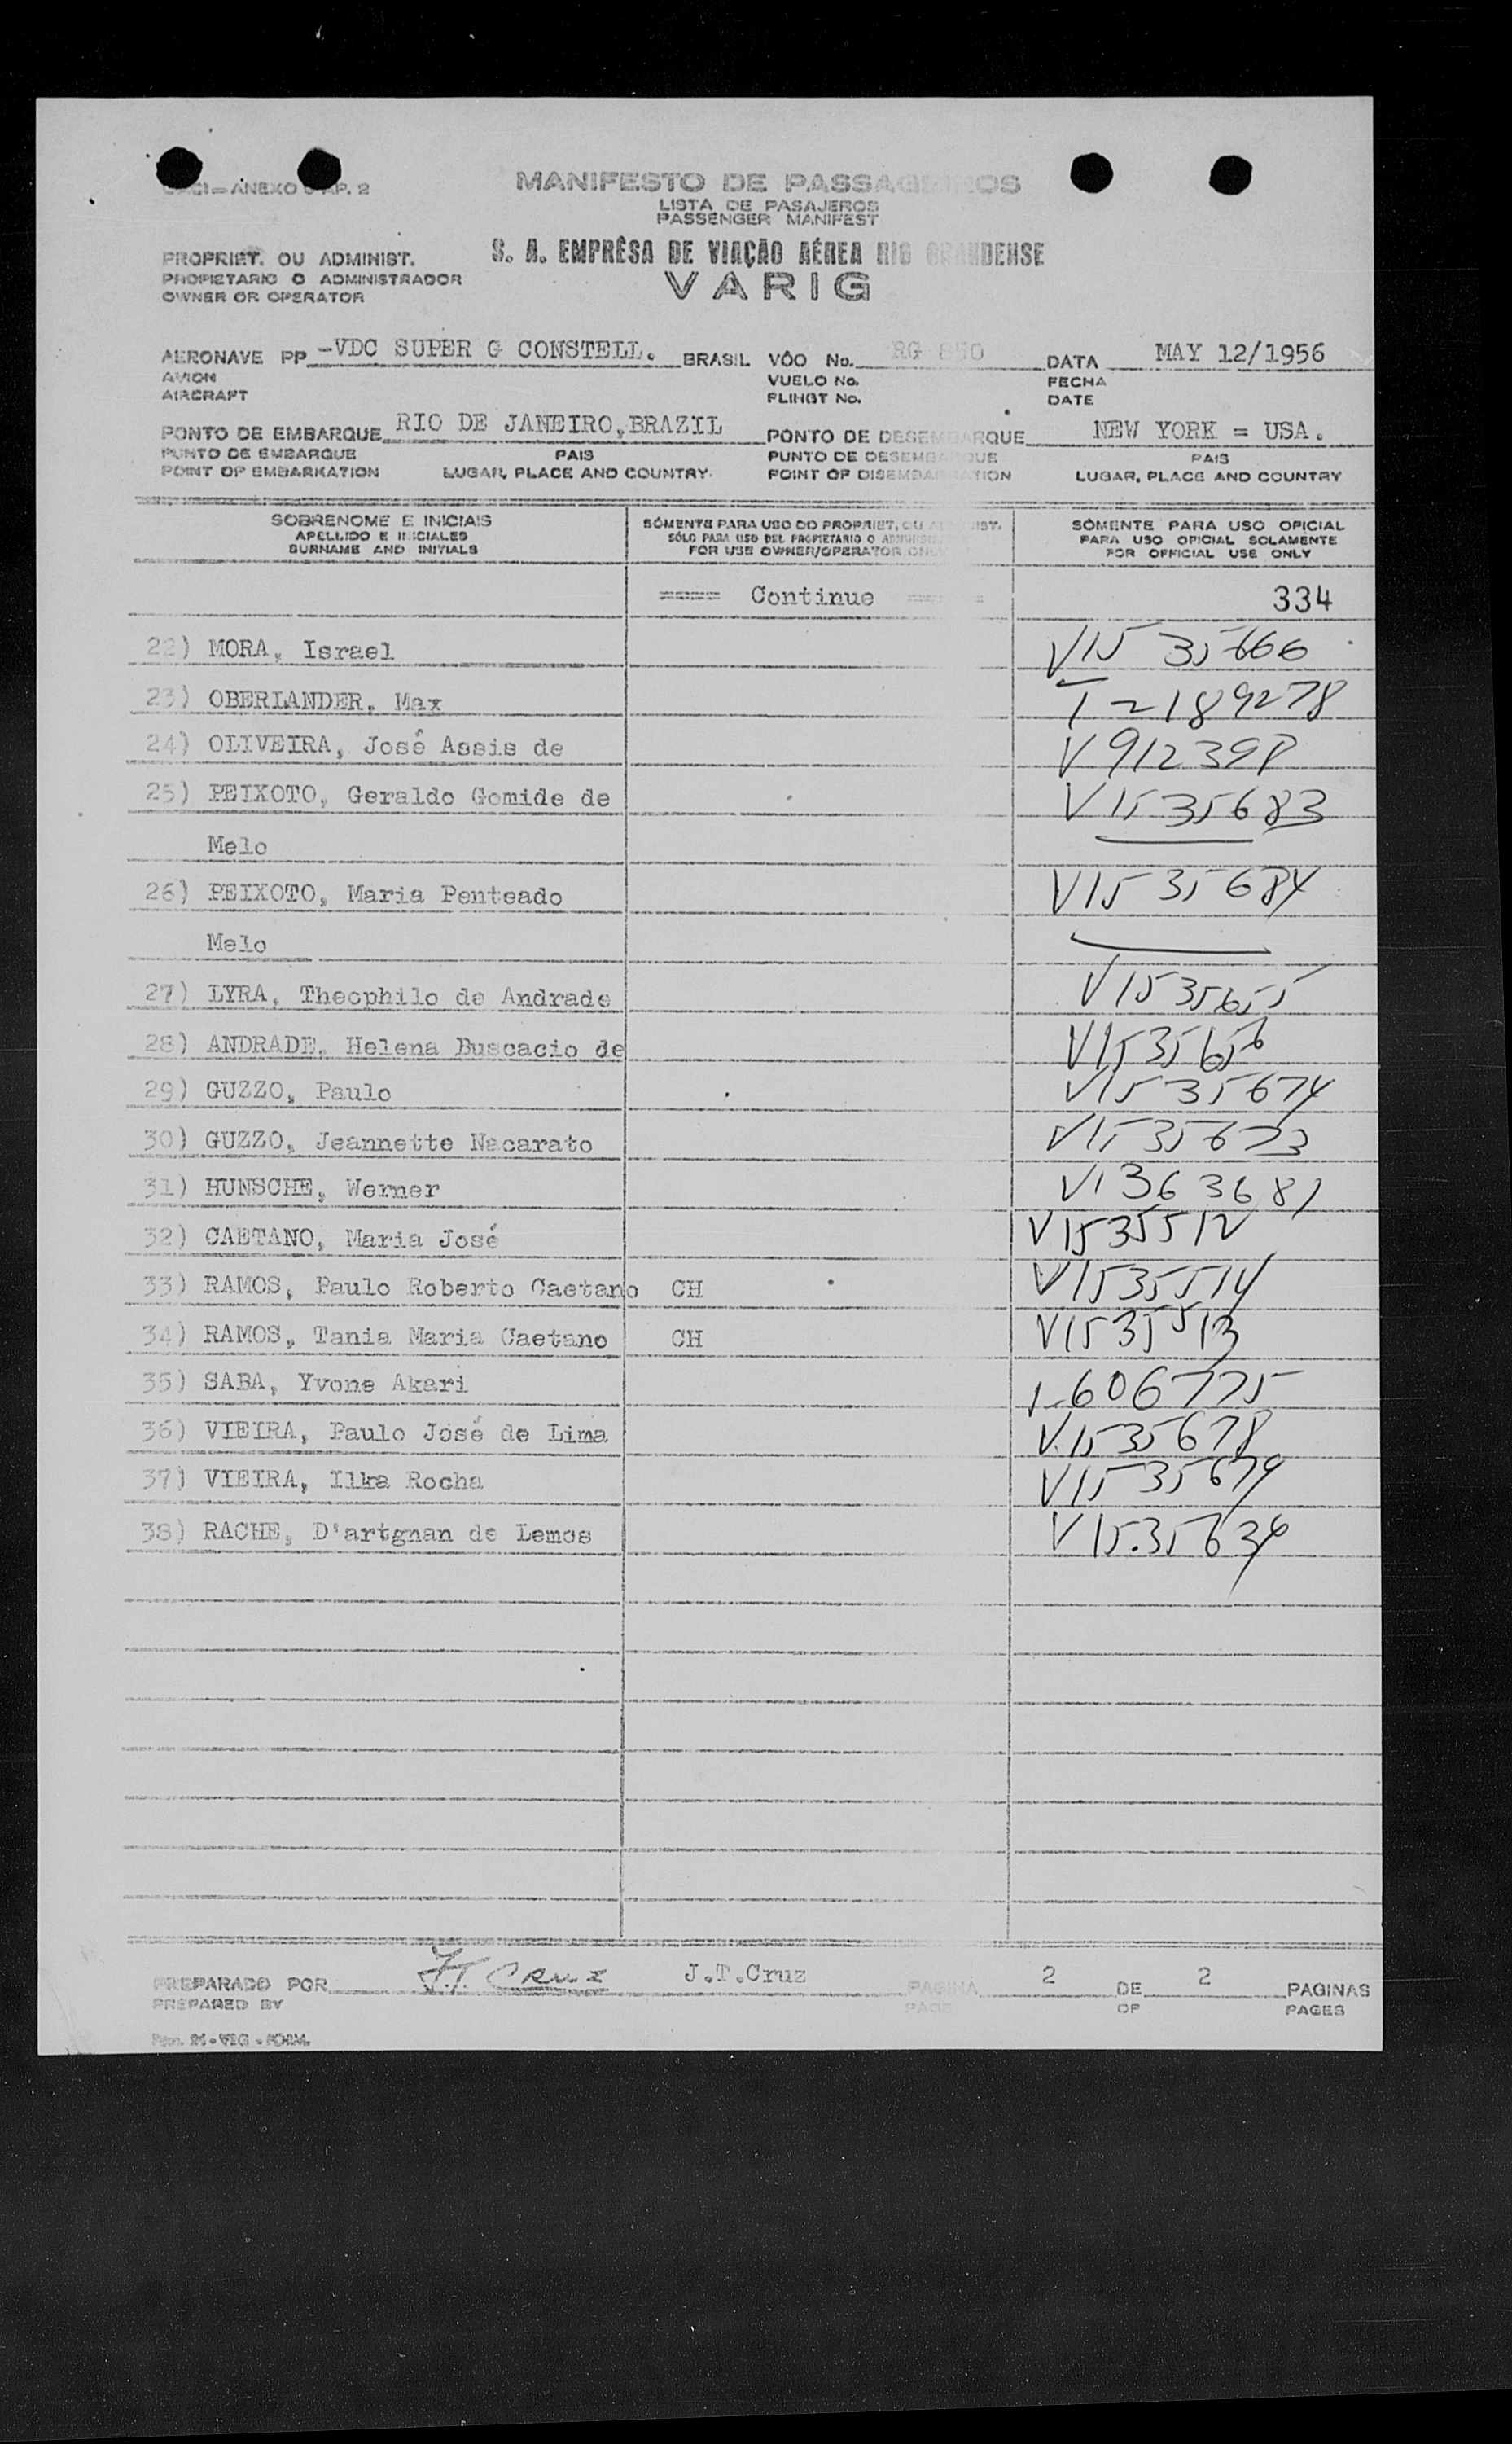 ANEXO AP. 2
MANIFESTO DE PASSAGEIROS
LISTA DE PASAJEROS
PASSENGER MANIFEST
S. A. EMPRÊSA DE VIAÇÃO AÉREA RIO GRANDENSE
VARIG
PROPRIET. OU ADMINIST.
PROPIETARIO O ADMINISTRADOR
OWNER OR OPERATOR
AERONAVE PP -VDC SUPER G CONSTELL. BRASIL VÔO No. RG 850 DATA MAY 12/1956
AVION VUELO No. FECHA
AIRCRAFT FLIHGT No. DATE
PONTO DE EMBARQUE RIO DE JANEIRO,BRAZIL PONTO DE DESEMBARQUE NEW YORK = USA.
PUNTO DE EMBARQUE PAIS PUNTO DE DESEMBARQUE PAIS
POINT OF EMBARKATION LUGAR, PLACE AND COUNTRY. POINT OF DISEMBARKATION LUGAR, PLACE AND COUNTRY
SOBRENOME E INICIAIS SÓMENTE PARA USO DO PROPRIET. OU ADMINIST. SÓMENTE PARA USO OFICIAL
APELLIDO E INICIALES SÓLO PARA USO DEL PROPIETARIO O PARA USO OFICIAL SOLAMENTE
SURNAME AND INITIALS FOR USE OWNER/OPERATOR ONLY FOR OFFICIAL USE ONLY
==== Continue ==== 334
22) MORA, Israel V1535666
23) OBERLANDER, Max T-2189278
24) OLIVEIRA, José Assis de V912398
25) PEIXOTO, Geraldo Gomide de V1535683
Melo
26) PEIXOTO, Maria Penteado V1535684
Melo
27) LYRA, Theophilo de Andrade V1535655
28) ANDRADE, Helena Buscacio de V1535656
29) GUZZO, Paulo V1535674
30) GUZZO, Jeannette Nacarato V1535673
31) HUNSCHE, Werner V1363681
32) CAETANO, Maria José V1535512
33) RAMOS, Paulo Roberto Caetano CH V1535514
34) RAMOS, Tania Maria Caetano CH V1535513
35) SABA, Yvone Akari 1-606775
36) VIEIRA, Paulo José de Lima V1535678
37) VIEIRA, Ilka Rocha V1535679
38) RACHE, D'artgnan de Lemos V1535634
PREPARADO POR J.T. Cruz J.T.Cruz PAGINA 2 DE 2 PAGINAS
PREPARED BY PAGE OF PAGES